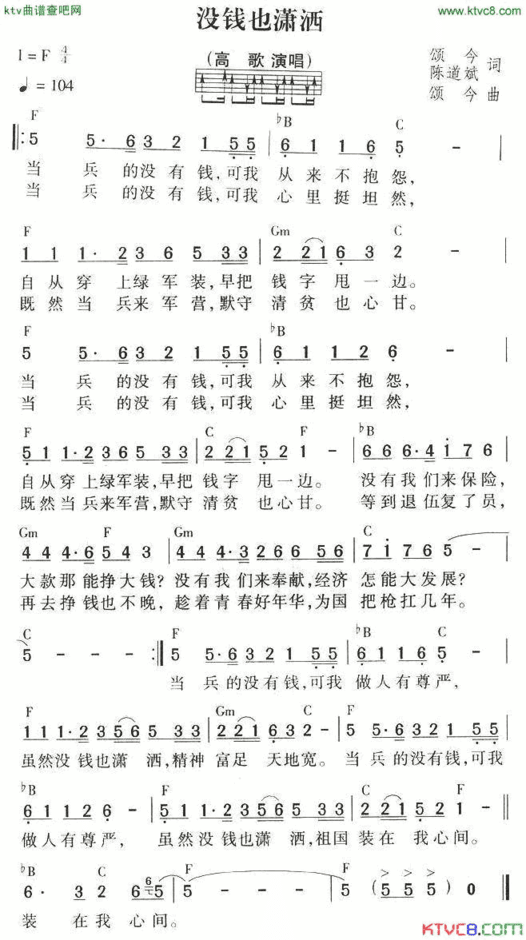 ktv曲谱查吧网
www.ktvc8.com
没钱也潇洒
1=F 4/4
♩=104
(高 歌 演唱)
颂 今
陈道斌 词
颂 今 曲
F ♭B C
‖: 5 5· 6 3 2 1 5 5 | 6 1 1 6 5 - |
当 兵 的没 有 钱,可我 从 来 不 抱 怨,
当 兵 的没 有 钱,可我 心 里 挺 坦 然,
F Gm C
1 1 1· 2 3 6 5 3 3 | 2 2 2 1 6 3 2 - |
自 从 穿 上绿 军 装,早把 钱 字 甩 一 边。
既 然 当 兵来 军 营,默守 清 贫 也 心 甘。
F ♭B
5 5· 6 3 2 1 5 5 | 6 1 1 2 6 - |
当 兵 的没 有 钱,可我 从 来 不 抱 怨,
当 兵 的没 有 钱,可我 心 里 挺 坦 然,
F C F ♭B
5 1 1·2 3 6 5 3 3 | 2 2 2 1 5 2 1 - | 6 6 6·4 1 7 6 |
自从穿 上绿军装,早把 钱字 甩一边。 没有我 们来保险,
既然当兵来军营,默守 清贫 也心甘。 等到退 伍复了员,
Gm F Gm C
4 4 4·6 5 4 3 | 4 4 4·3 2 6 6 5 6 | 7 1 7 6 5 - |
大款那 能挣大钱? 没有我 们来奉献,经济 怎能大发展?
再去挣 钱也不晚, 趁着青 春好年华,为国 把枪扛几年。
C F ♭B C
5 - - - :‖ 5 5·6 3 2 1 5 5 | 6 1 1 6 5 - |
当 兵 的没有钱,可我 做人有尊严,
F Gm C F
1 1 1·2 3 5 6 5 3 3 | 2 2 2 1 6 3 2 - | 5 5·6 3 2 1 5 5 |
虽然没 钱也潇 洒,精神 富足 天地宽。 当 兵 的没有钱,可我
♭B F C F
6 1 1 2 6 - | 5 1 1·2 3 5 6 5 3 3 | 2 2 2 1 5 2 1 - ‖
做人有尊严, 虽然没 钱也潇 洒,祖国 装在 我心间。
♭B C F F
6· 3 2 6 5 | 5 - - - | 5 (5 5 5 0 ‖
装 在我 心间。
KTVC8.com